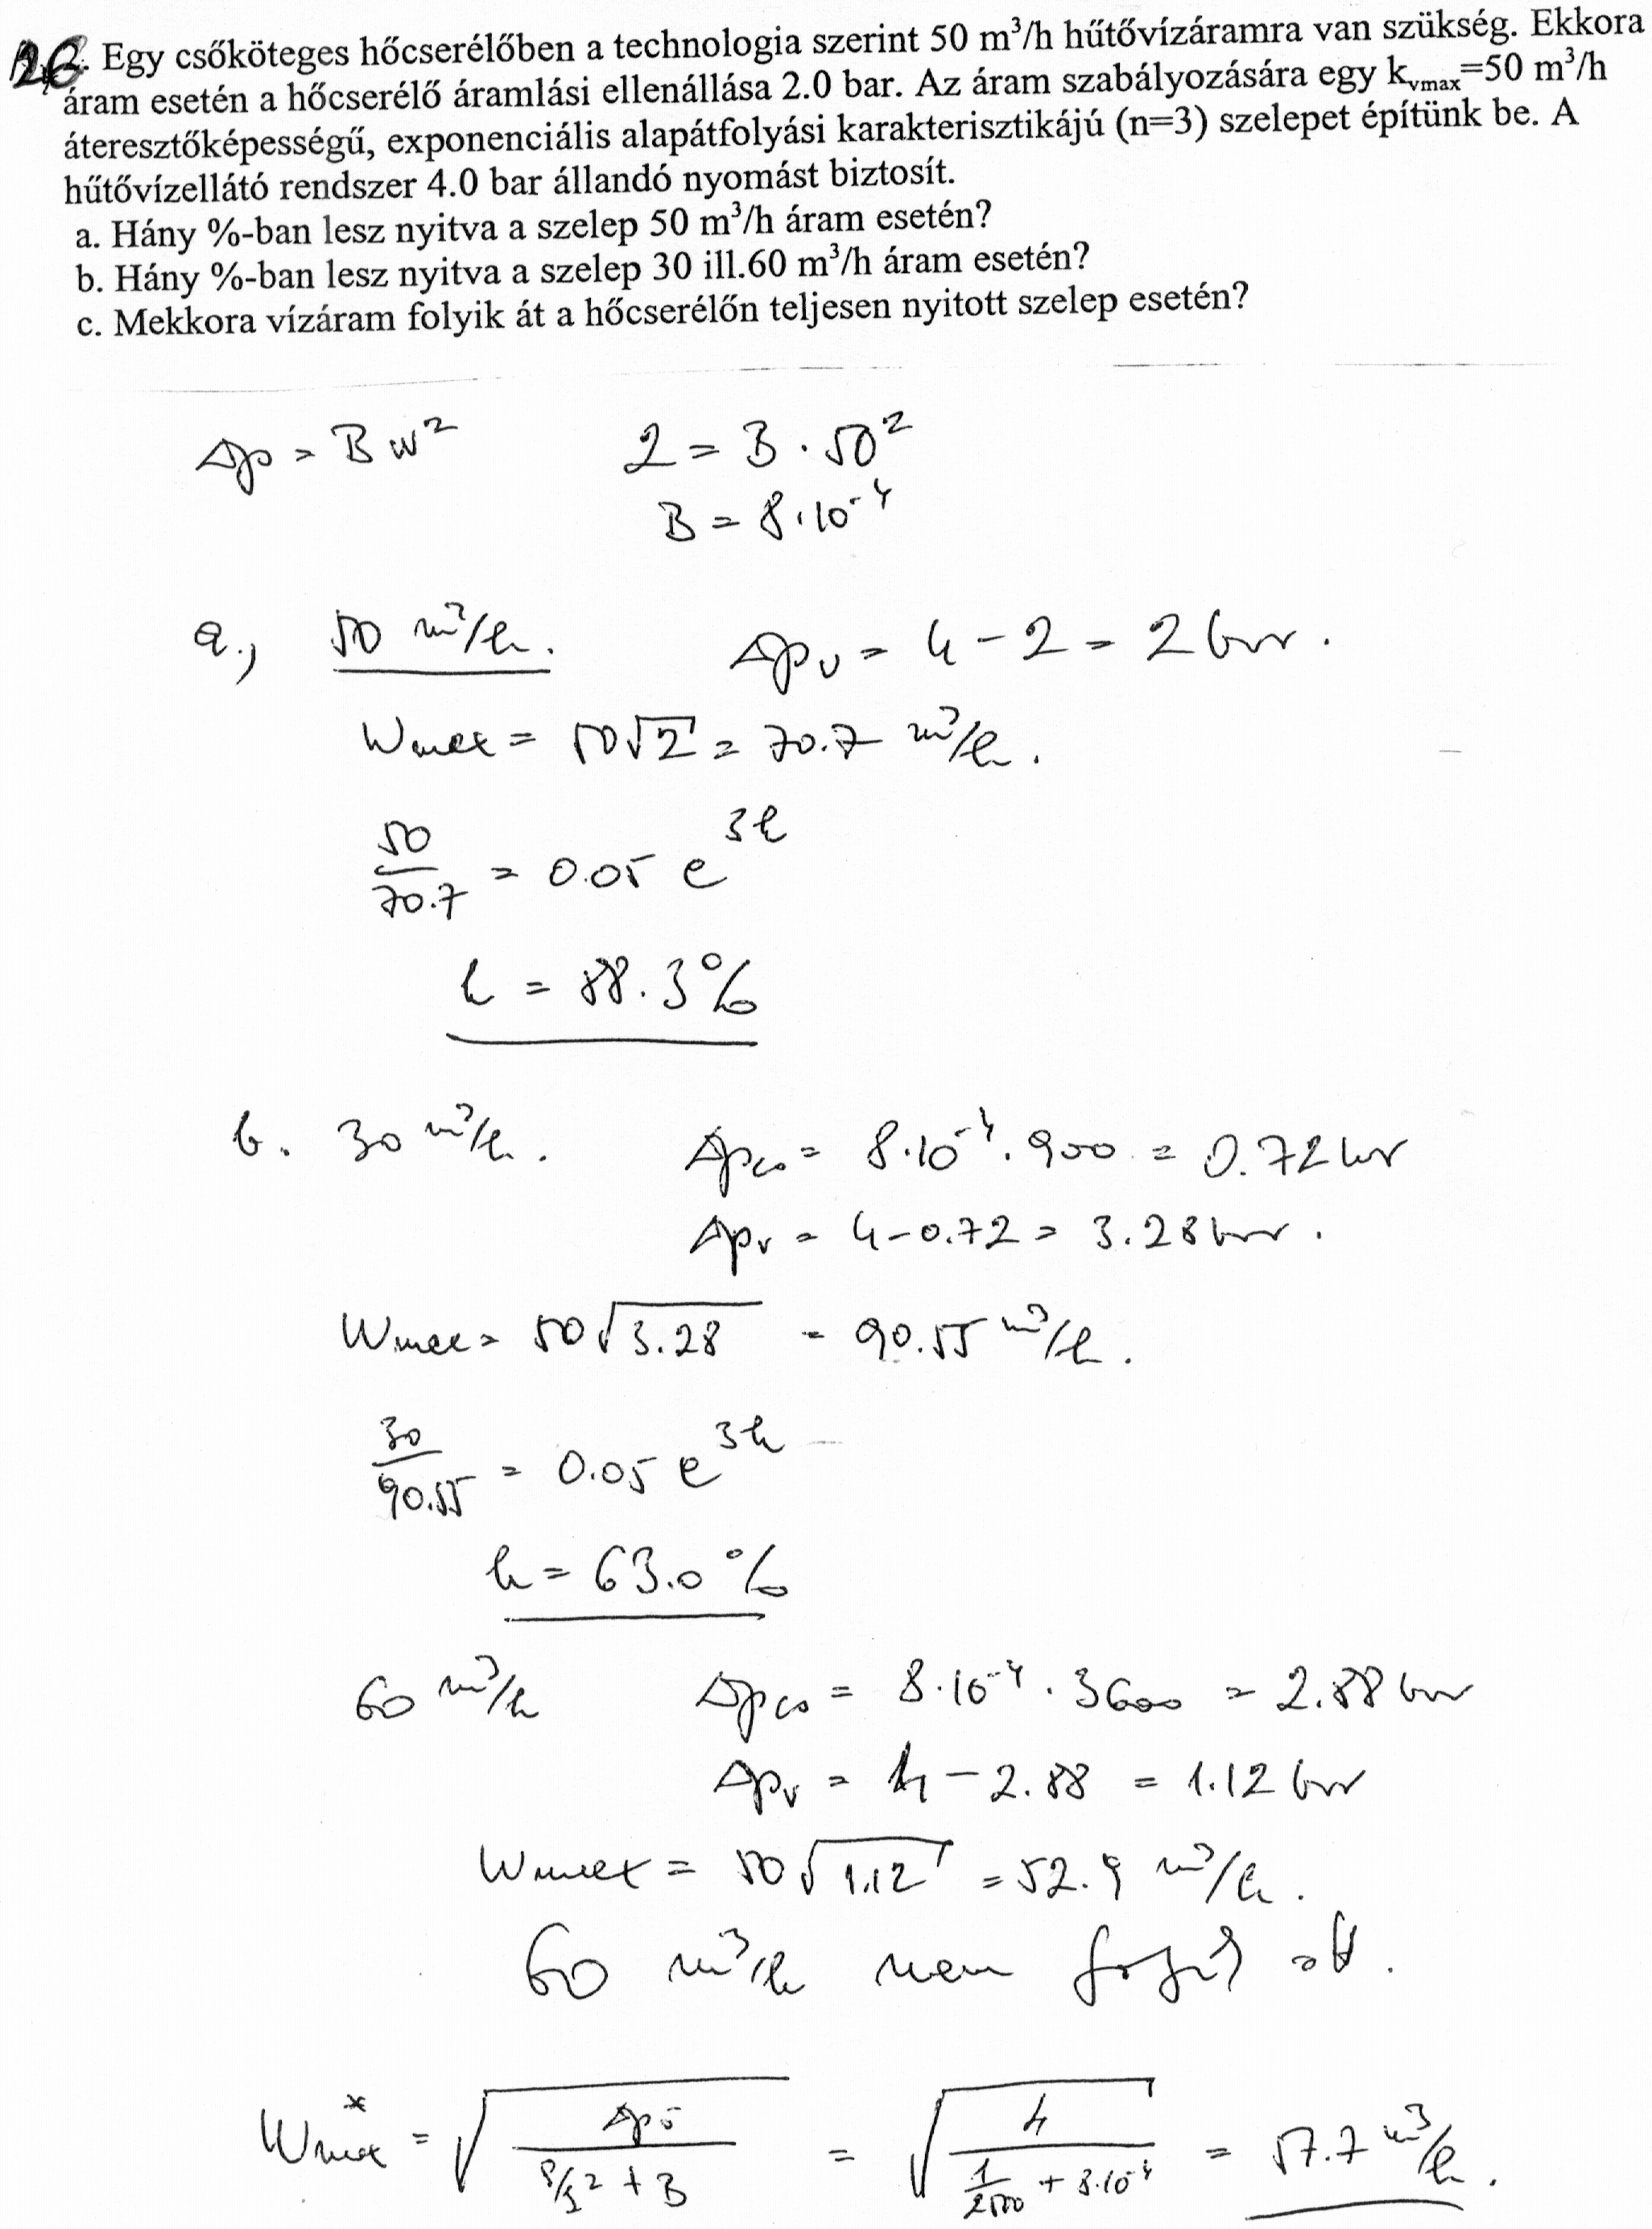 26. Egy csőköteges hőcserélőben a technologia szerint 50 m³/h hűtővízáramra van szükség. Ekkora
áram esetén a hőcserélő áramlási ellenállása 2.0 bar. Az áram szabályozására egy kvmax=50 m³/h
áteresztőképességű, exponenciális alapátfolyási karakterisztikájú (n=3) szelepet építünk be. A
hűtővízellátó rendszer 4.0 bar állandó nyomást biztosít.
a. Hány %-ban lesz nyitva a szelep 50 m³/h áram esetén?
b. Hány %-ban lesz nyitva a szelep 30 ill.60 m³/h áram esetén?
c. Mekkora vízáram folyik át a hőcserélőn teljesen nyitott szelep esetén?
Δp = B w² 2 = B · 50²
B = 8·10⁻⁴
a., 50 m³/h. Δpv = 4 - 2 = 2 bar.
Wmax = 50√2 = 70.7 m³/h.
50/70.7 = 0.05 e^3h
h = 88.3%
b. 30 m³/h. Δpcs = 8·10⁻⁴·900 = 0.72 bar
Δpv = 4-0.72 = 3.28 bar.
Wmax = 50√3.28 = 90.55 m³/h.
30/90.55 = 0.05 e^3h
h = 63.0%
60 m³/h Δpcs = 8·10⁻⁴·3600 = 2.88 bar
Δpv = 4 - 2.88 = 1.12 bar
Wmax = 50√1.12 = 52.9 m³/h.
60 m³/h nem folyik át.
W*max = √(Δpö / (/² + B)) = √(4 / (1/2500 + 8·10⁻⁴)) = 57.7 m³/h.